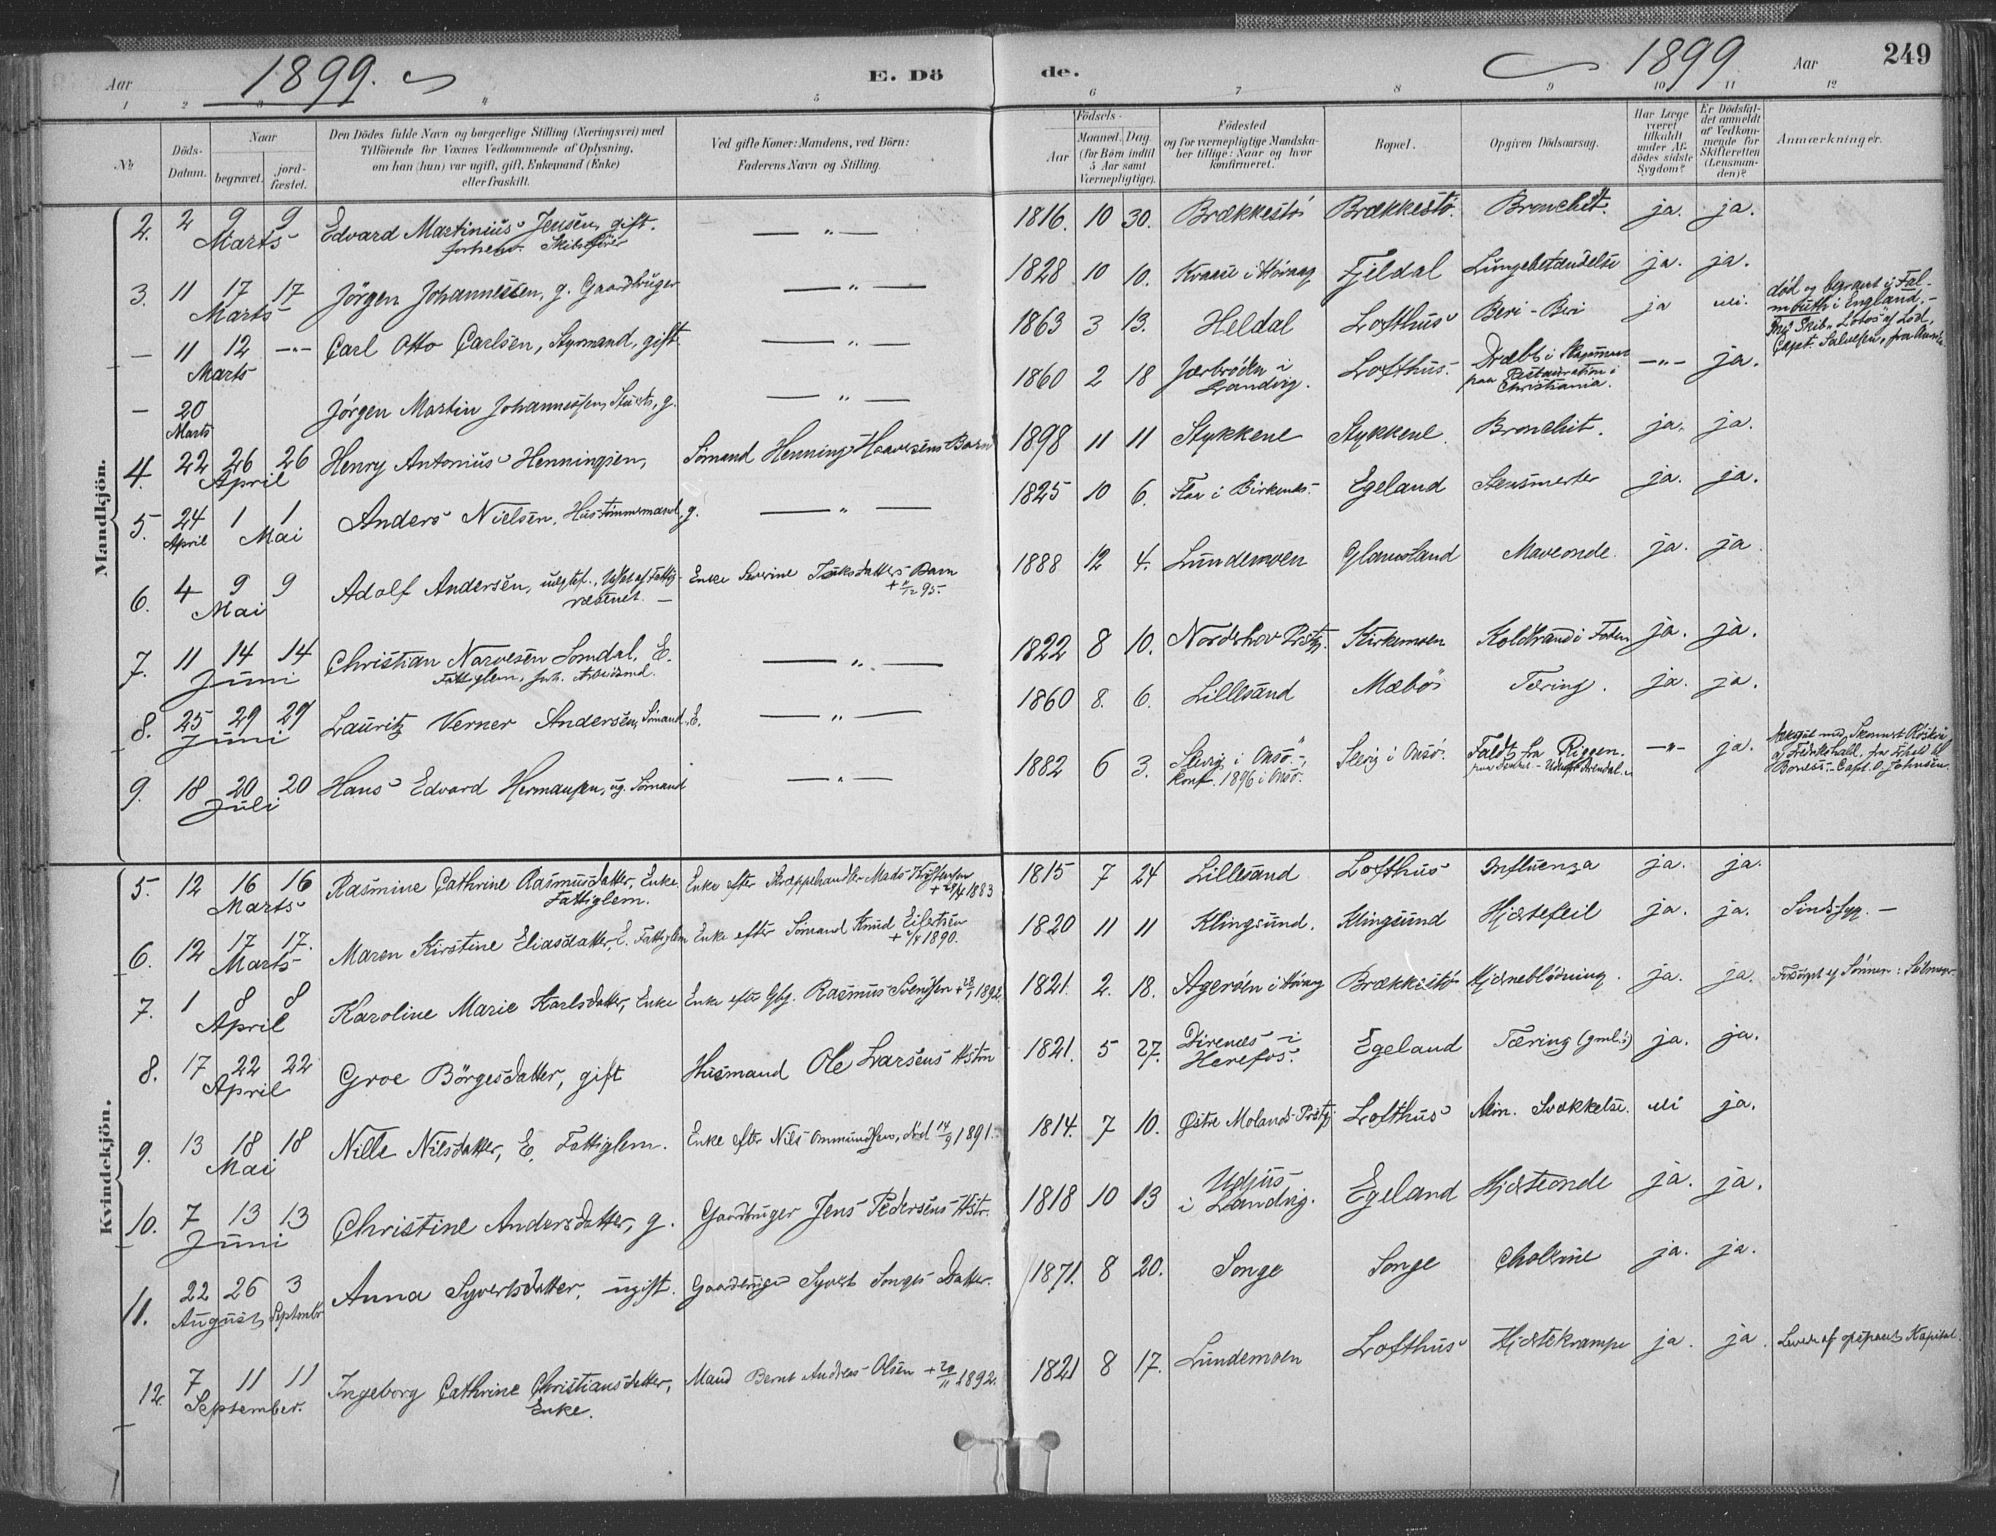 Aar 1899. E. Dö
de. 1899 Aar 249
1 2 3 4 5 6 7 8 9 10 11 12
№
Döds-Datum.
Naar begravet. jordfæstet.
Den Dödes fulde Navn og borgerlige Stilling (Næringsvei) med Tilföiende for Voxnes Vedkommende af Oplysning, om han (hun) var ugift, gift, Enkemand (Enke) eller fraskilt.
Ved gifte Koner: Mandens, ved Börn: Faderens Navn og Stilling.
Födsels-
Aar
Maaned. Dag (for Börn indtil 5 Aar samt Værnepligtige).
Födested og for værnepligtige Mandskaber tillige: Naar og hvor konfirmeret.
Bopæl.
Opgiven Dödsaarsag.
Har Læge været tilkaldt under Afdödes sidste Sygdom?
Er Dödsfaldet anmeldt af Vedkommende for Skifteretten (Lensmanden)?
Anmærkninger.
Mandkjön.
2. 2 9 9 Marts Edvard Martinius Jensen, gift. forhenv. Skibsfører — " — 1816. 10 30. Brækkestö Brækkestö. Bronchit. ja. ja.
3. 11 17 17 Marts Jörgen Johannessen, g. Gaardbruger — " — 1828 10 10. Kvaase i Høvaag Fjeldal Lungebetændelse ja. ja.
— 11 12 —"— Marts Carl Otto Carlsen, Styrmand, gift. — " — 1863 3 13. Heldal Lofthus Beri-Beri ja nei. död og begravet i Falmouth i England.
— 20 Marts Jörgen Martin Johannessen, g. — " — 1860 2 18 i Landvig. Lofthus. Dræbt i paa Restauration i Christiania. —"— ja.
4. 22 26 26 April Henry Antonius Henningsen, Sömand Henning Haaversens Barn 1898 11 11 Stykkene Stykkene. Bronchit. ja. ja.
5. 24 April 1 1 Mai Anders Nielsen, Hustömmermand, g. — " — 1825 10 6. Flaa i Birkenes. Egeland Stensmerter ja. ja.
6. 4 9 9 Mai Adolf Andersen, Fattigvæsenet. — Enke Severine Isaksdatters Barn 1888 12 4. Lundemoen Glamsland Maveonde. ja. ja
7. 11 14 14 Juni Christian Narvesen Somdal, E. Fattiglem, forh. Arbeidsmd. — " — 1822 8 10. Norderhov Prstgj. Kirkemoen Koldbrand i Foden ja. ja.
8. 25 29 29 Juni Lauritz Verner Andersen, Sömand, E. — " — 1860 8. 6. Lillesand Mæbö Tæring. ja. ja.
9. 18 20 20 Juli Hans Edvard Hermansen, ug. Sömand — " — 1882 6 3. Slevig i Onsö. Konf. 1896 i Onsö. Slevig i Onsö. Faldt fra Riggen. —"— ja. af Fredrikshald. fra Capt. O. Johnsen.
Kvindekjön.
5. 12 16 16 Marts Rasmine Cathrine Rasmusdatter, Enke. Fattiglem. Enke efter Skræppehandler Mads 1883 1815 7 24 Lillesand Lofthus Influenza ja. ja.
6. 12 17 17. Marts Maren Kirstine Eliasdatter, E. Fattiglem Enke efter Sömand Knud Eilertsen 1890. 1820 11 11 Klingsund. Klingsund Hjertefeil ja. ja. Sindssyg. —
7. 1 8 8 April Karoline Marie Karlsdatter, Enke Enke efter Gbg. Rasmus Svensen 1892. 1821. 2. 18. Ageröen i Høvaag Brækkestö Hjerneblödning. ja. ja. Forsörget af Sönnen:
8. 17 22 22 April Groe Börgesdatter, gift Husmand Ole Larsens Hstru 1821. 5 27. Direnes i Herefos. Egeland Tæring (gml.) ja. ja.
9. 13 18 18 Mai Nille Nilsdatter, E. Fattiglem. Enke efter Nils Ommundsen, död 14/9 1891. 1814. 7 10. Østre Molands Prstgj. Lofthus Alm. Svækkelse. nei ja.
10. 7 13 13 Juni Christine Andersdatter, g. Gaardbruger Jens Pedersens Hstr. 1818 10 13 Udjus i Landvig. Egeland Hjerteonde ja. ja.
11. 22 26 August 3 September Anna Syvertsdatter, ugift. Gaardbruger Syvert Songes Datter. 1871. 8 20. Songe Songe Cholerine ja. ja.
12. 7 11 11 September. Ingeborg Cathrine Christiansdatter, Enke. Mand Bernt Andreas Olsen + 29/11 1892. 1821 8 17. Lundemoen Lofthus Hjertekrampe ja. ja Lever af opsparet Kapital.